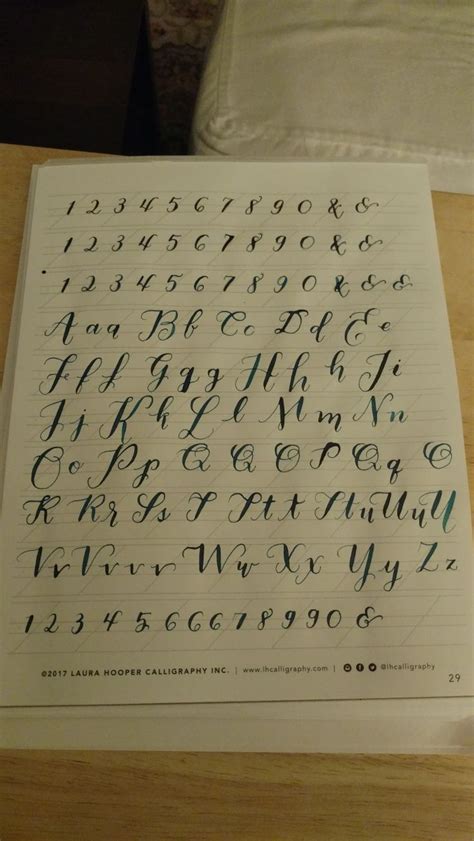 1 2 3 4 5 6 7 8 9 0 & &
1 2 3 4 5 6 7 8 9 0 & &
1 2 3 4 5 6 7 8 9 0 & & &
A a a B b C c D d E e
F f f G g g H h h I i
J j K k L l M m N n
O o P p Q Q O P Q q O
R R r S s T T t t T t u U u U
V v V v v v W w X x Y y Z z
1 2 3 4 5 6 6 6 7 8 9 9 0 &
©2017 LAURA HOOPER CALLIGRAPHY INC. | www.lhcalligraphy.com | @lhcalligraphy
29